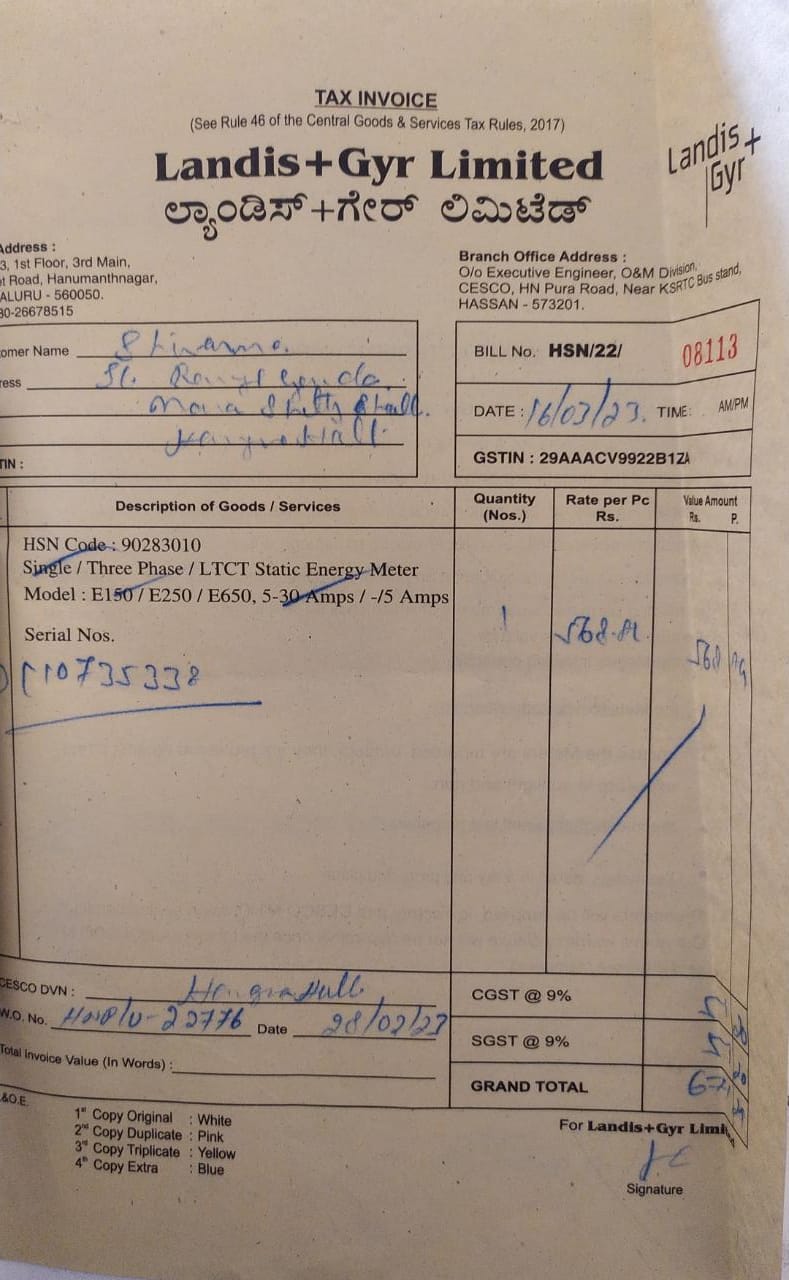 TAX INVOICE
(See Rule 46 of the Central Goods & Services Tax Rules, 2017)
Landis+Gyr Limited
Landis+
Gyr
ಲ್ಯಾಂಡಿಸ್+ಗೇರ್ ಲಿಮಿಟೆಡ್
Address :
3, 1st Floor, 3rd Main,
t Road, Hanumanthnagar,
ALURU - 560050.
80-26678515
Branch Office Address :
O/o Executive Engineer, O&M Division,
CESCO, HN Pura Road, Near KSRTC Bus stand,
HASSAN - 573201.
omer Name
ress
TIN :
BILL No. HSN/22/ 08113
DATE : 16/03/23. TIME: AM/PM
GSTIN : 29AAACV9922B1ZA
Description of Goods / Services Quantity (Nos.) Rate per Pc Rs. Value Amount Rs. P.
HSN Code : 90283010
Single / Three Phase / LTCT Static Energy Meter
Model : E150 / E250 / E650, 5-30 Amps / -/5 Amps
1
Serial Nos.
10735338
CESCO DVN :
W.O. No. Date
Total Invoice Value (In Words) :
CGST @ 9%
SGST @ 9%
GRAND TOTAL
&O.E.
1st Copy Original : White
2nd Copy Duplicate : Pink
3rd Copy Triplicate : Yellow
4th Copy Extra : Blue
For Landis+Gyr Limi
Signature